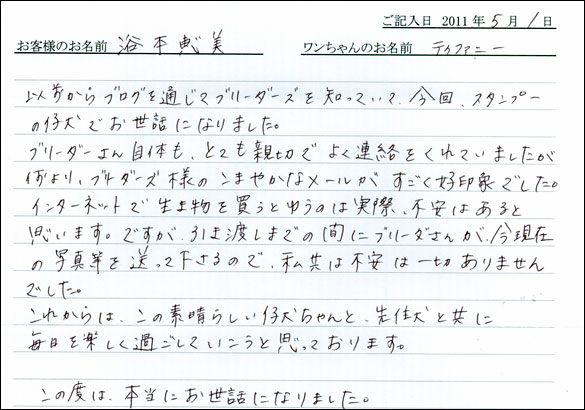 ご記入日 2011年5月1日
お客様のお名前 浴本恵美 ワンちゃんのお名前 ティファニー
以前からブログを通じてブリーダーズを知っていて、今回、スタンプー
の仔犬でお世話になりました。
ブリーダーさん自体も、とても親切でよく連絡をくれていましたが
何より、ブリーダーズ様のこまやかなメールがすごく好印象でした。
インターネットで生き物を買うとゆうのは実際、不安はあると
思います。ですが、引き渡しまでの間にブリーダさんが、今現在
の写真等を送って下さるので、私共は不安は一切ありません
でした。
これからは、この素晴らしい仔犬ちゃんと、先住犬と共に
毎日を楽しく過ごしていこうと思っております。
この度は、本当にお世話になりました。